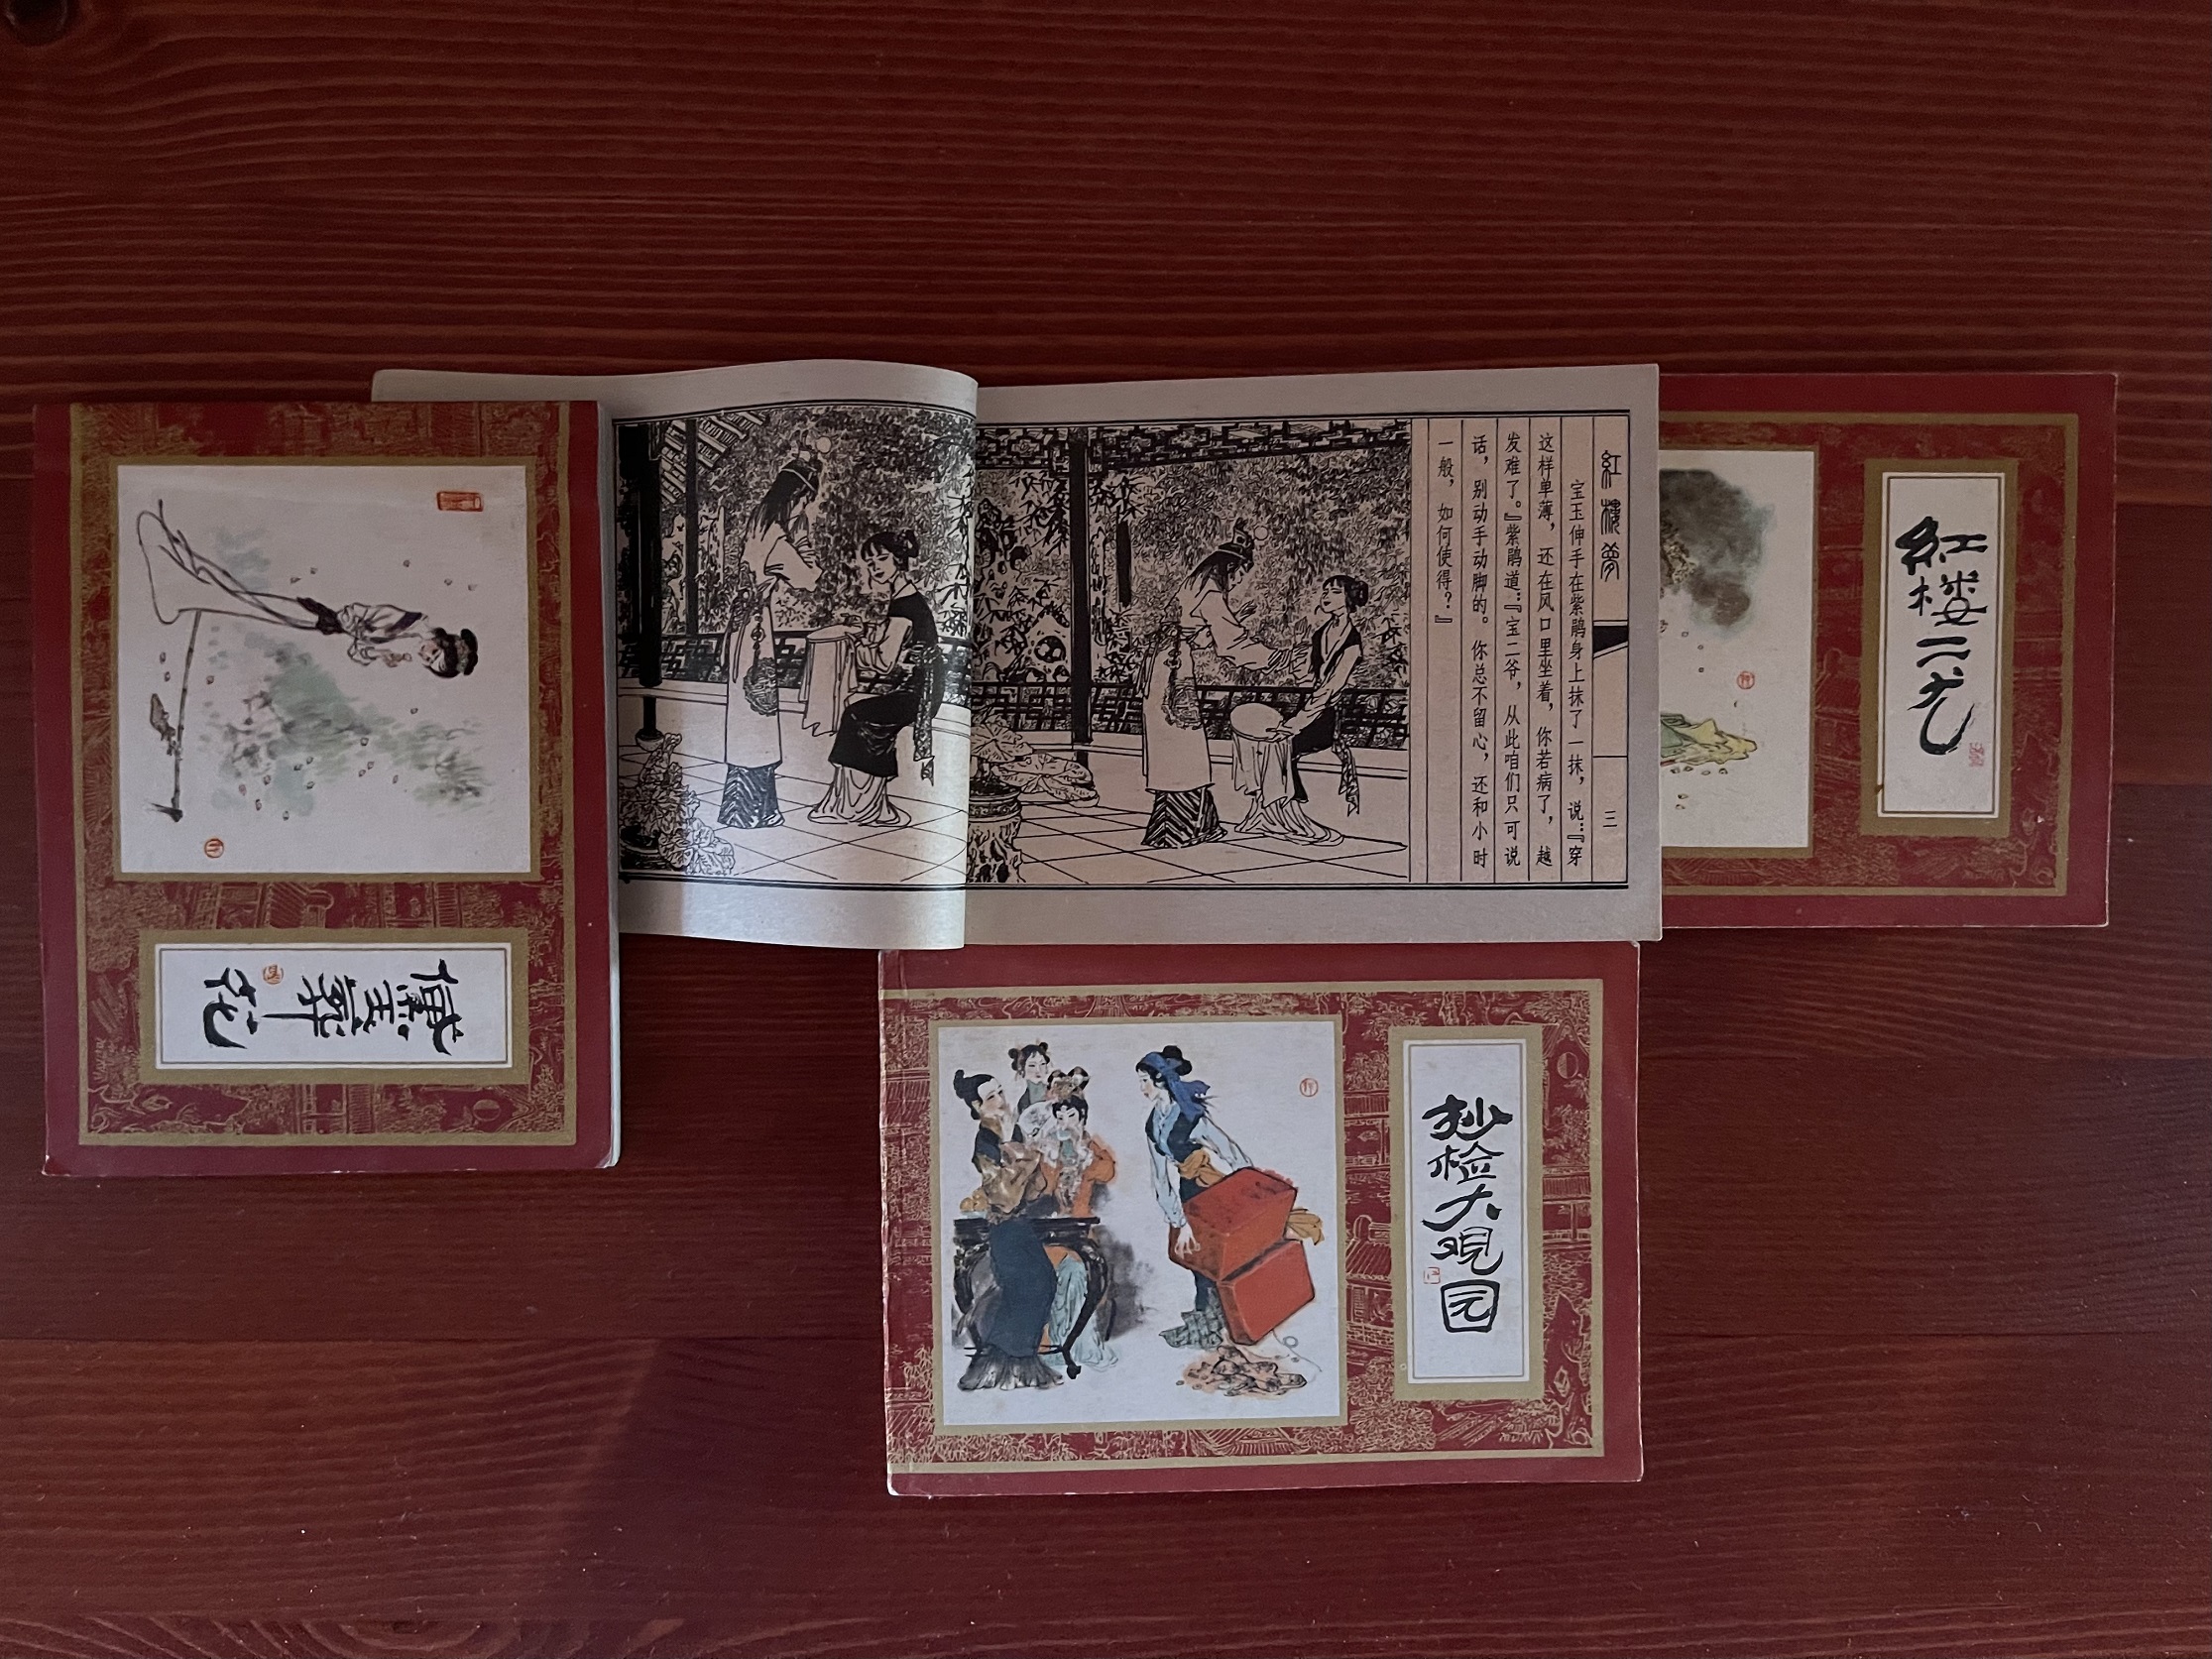 黛玉葬花
紅樓夢
三
宝玉伸手在紫鹃身上抹了一抹，说：『穿
这样单薄，还在风口里坐着，你若病了，越
发难了。』紫鹃道：『宝二爷，从此咱们只可说
话，别动手动脚的。你总不留心，还和小时
一般，如何使得？』
红楼二尤
抄检大观园